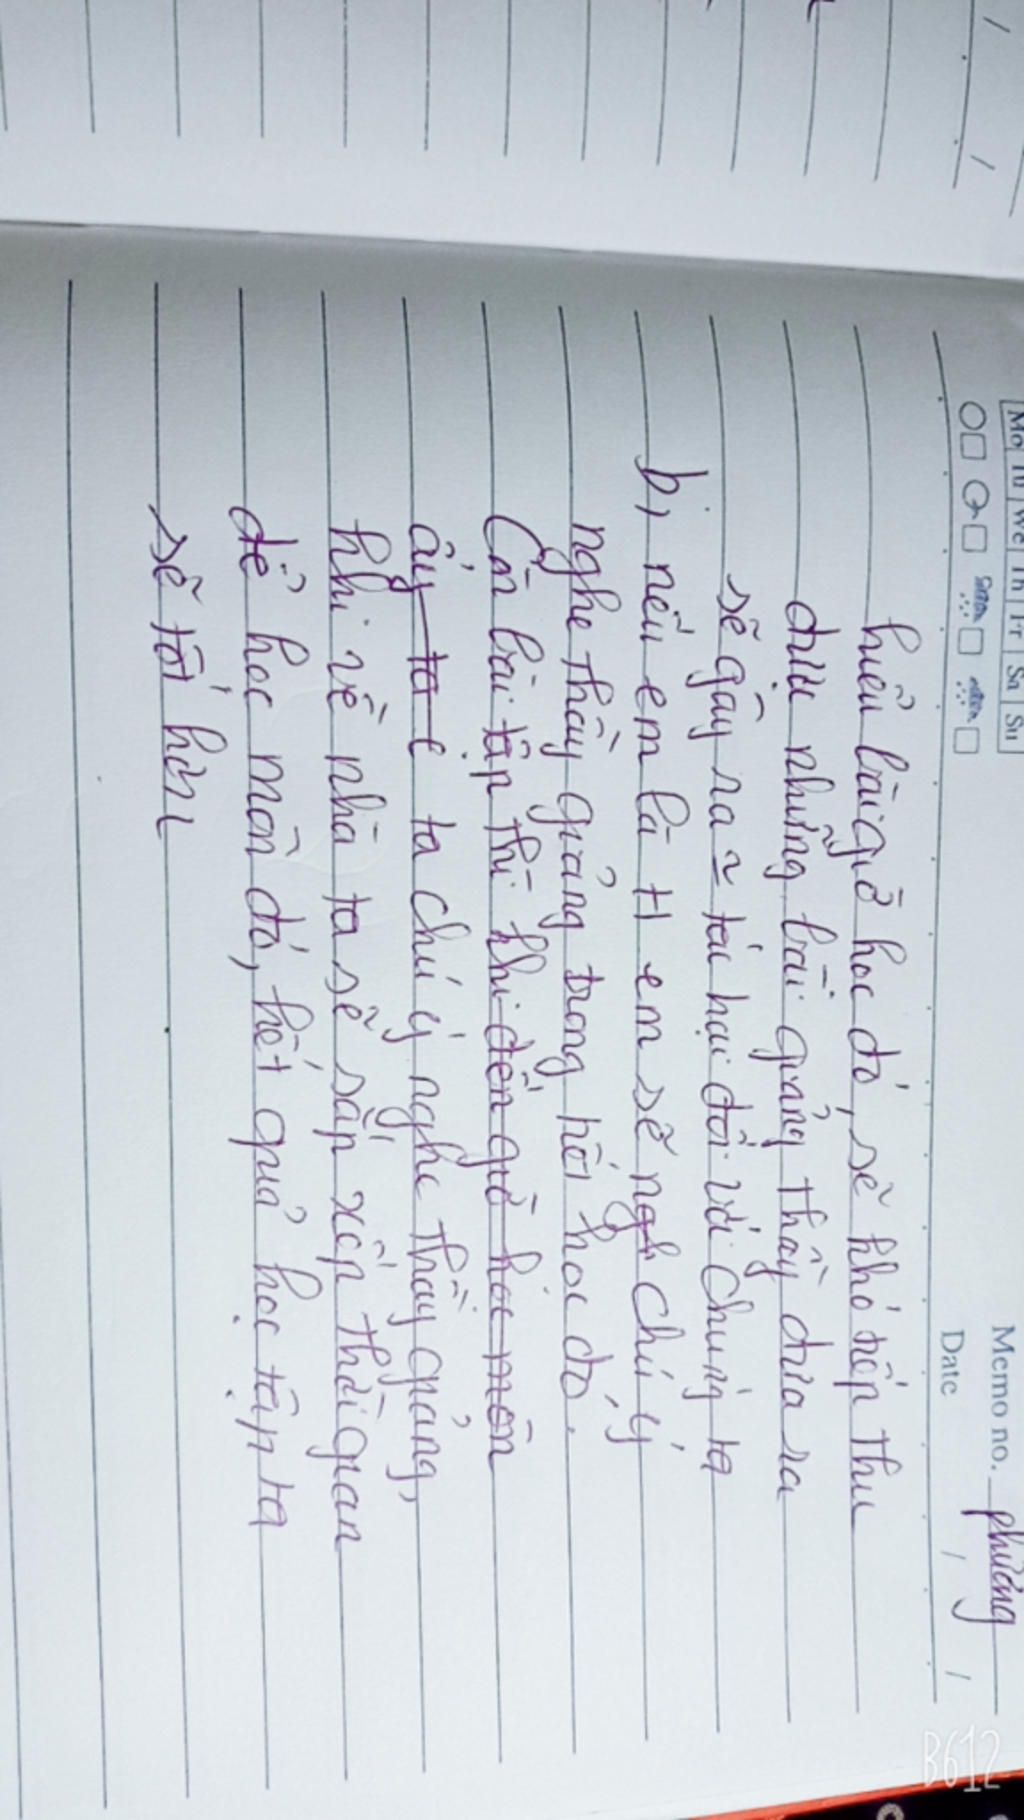 Mo Tu We Th Fr Sa Su
Memo no. phương
Date / /
hiểu bài giờ học đó, sẽ khó tiếp thu
được những bài giảng thầy đưa ra
sẽ gây ra ~ tác hại đối với chúng ta
b, nếu em là H em sẽ ngh chú ý
nghe thầy giảng trong tiết học đó.
Còn bài tập thì khi đến giờ học môn
ấy ta c ta chú ý nghe thầy giảng,
khi về nhà ta sẽ sắp xếp thời gian
để học môn đó, kết quả học tập ta
sẽ tốt hơn
B612